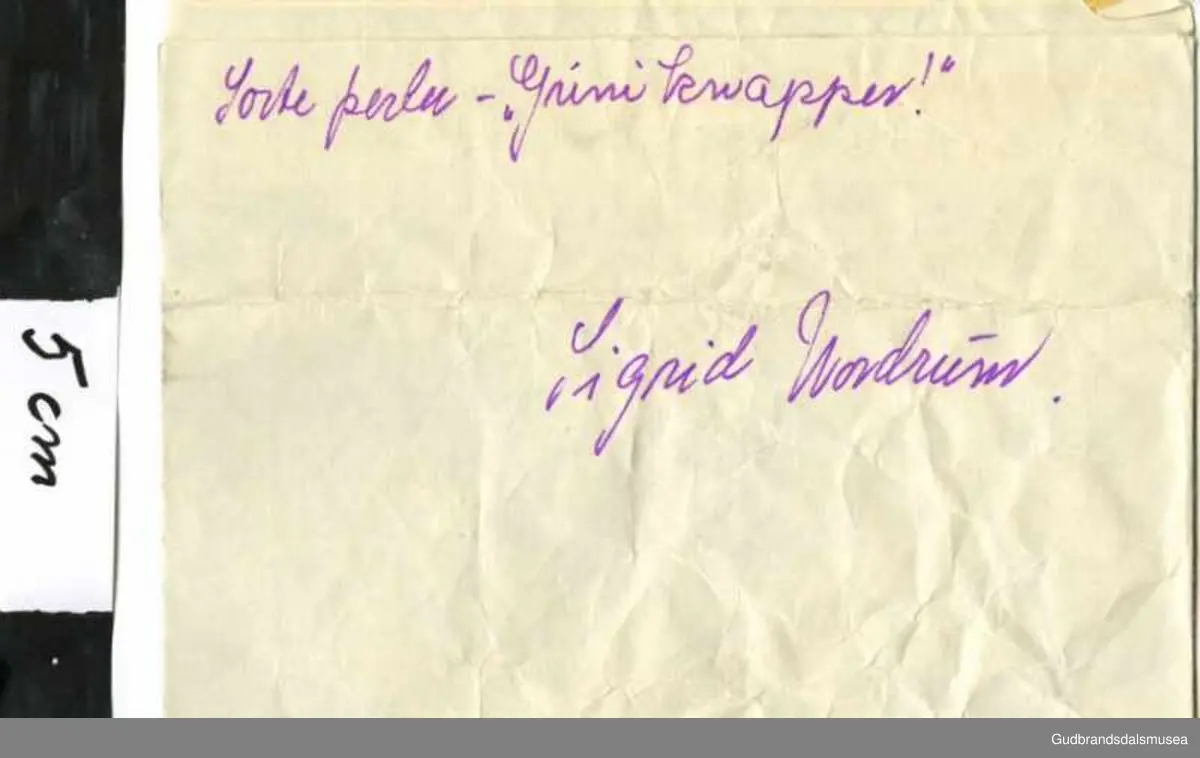 Sorte perler - „Grini knapper!“
Sigrid Nordrum.
5 cm
Gudbrandsdalsmusea